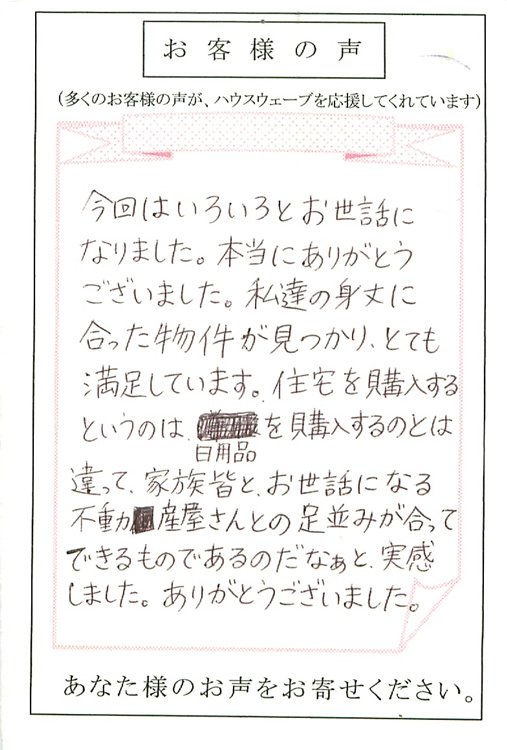 お客様の声
（多くのお客様の声が、ハウスウェーブを応援してくれています）
今回はいろいろとお世話に
なりました。本当にありがとう
ございました。私達の身丈に
合った物件が見つかり、とても
満足しています。住宅を購入する
というのは、を購入するのとは
日用品
違って、家族皆と、お世話になる
不動産屋さんとの足並みが合って
できるものであるのだなぁと、実感
しました。ありがとうございました。
あなた様のお声をお寄せください。